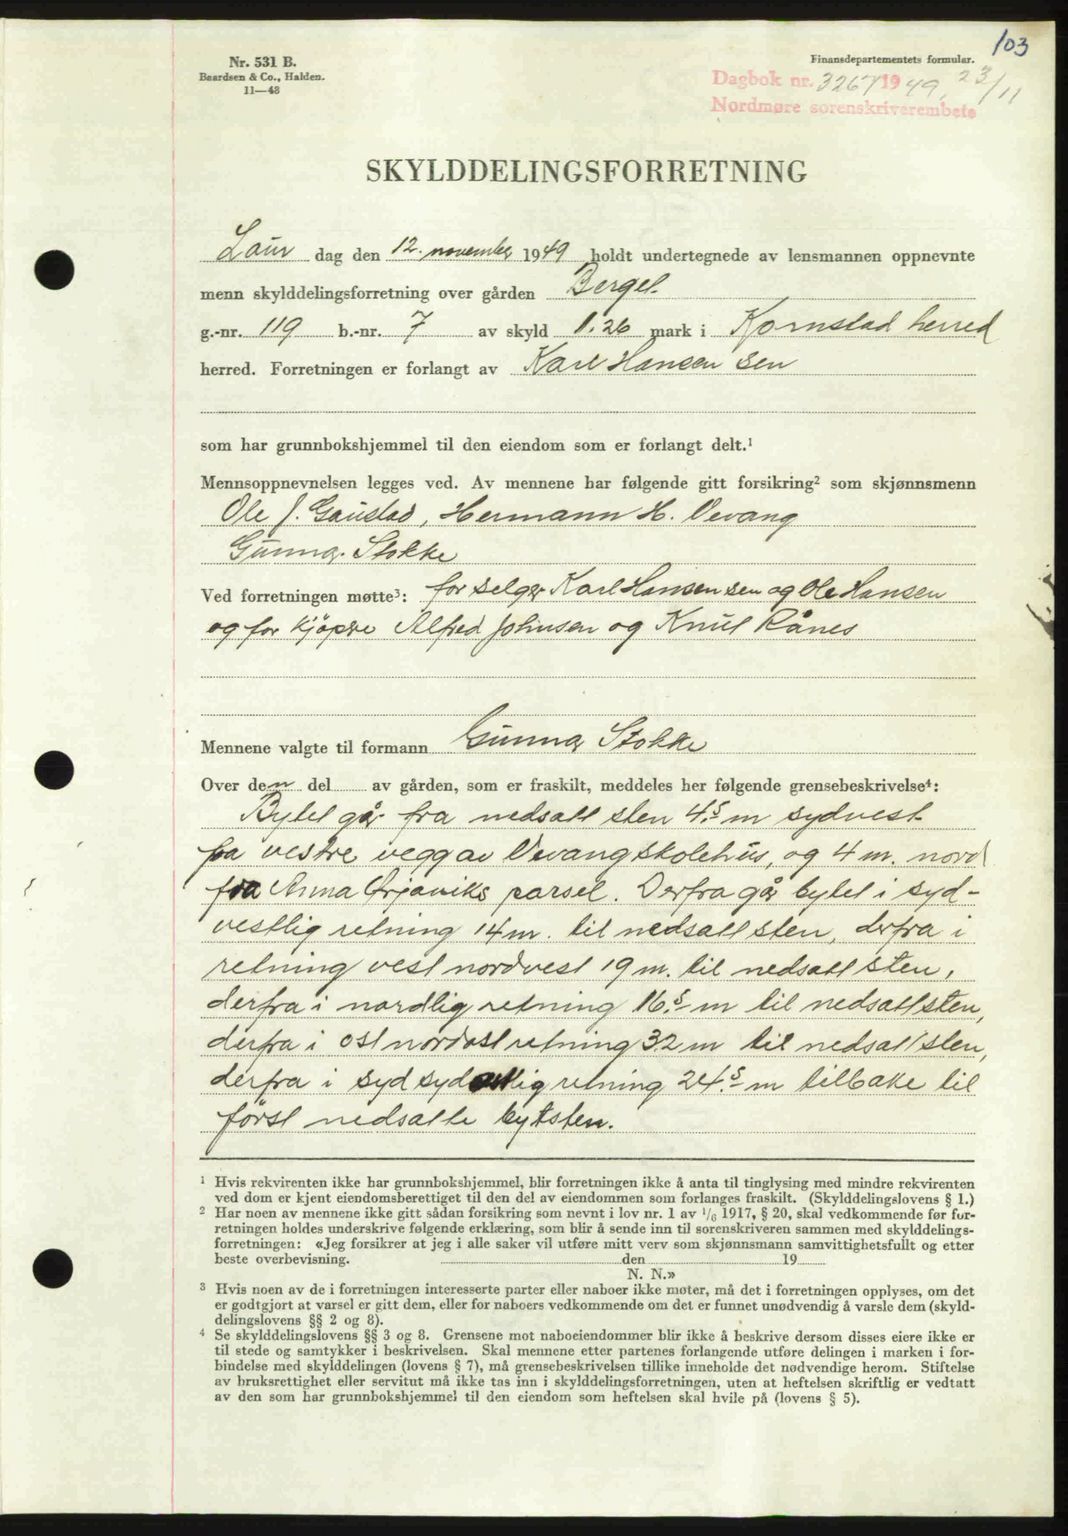 103
Nr. 531 B.
Baardsen & Co., Halden.
11—48
Finansdepartementets formular.
Dagbok nr. 3267 1949, 23/11
Nordmøre sorenskriverembete
SKYLDDELINGSFORRETNING
Laur dag den 12. november 1949 holdt undertegnede av lensmannen oppnevnte
menn skylddelingsforretning over gården Bergel.
g.-nr. 119 b.-nr. 7 av skyld 1.26 mark i Kornstad herred
herred. Forretningen er forlangt av Karl Hansen sen
som har grunnbokshjemmel til den eiendom som er forlangt delt.¹
Mennsoppnevnelsen legges ved. Av mennene har følgende gitt forsikring² som skjønnsmenn
Ole J. Gaustad, Hermann H. Vevang
Gunnar Stokke
Ved forretningen møtte³: for selger Karl Hansen sen og Ole Hansen
og for kjöpere Alfred Johnsen og Knut Rånes
Mennene valgte til formann Gunnar Stokke
Over den del av gården, som er fraskilt, meddeles her følgende grensebeskrivelse⁴:
Bytet går fra nedsatt sten 4.5 m sydvest
fra vestre vegg av Vevang skolehus, og 4 m. nord
fra Anna Ørjaviks parsel. Derfra går bytet i syd-
vestlig retning 14 m. til nedsatt sten, derfra i
retning vest nordvest 19 m. til nedsatt sten,
derfra i nordlig retning 16.5 m til nedsatt sten,
derfra i ost nordost retning 32 m til nedsatt sten,
derfra i syd sydostlig retning 24.5 m tilbake til
först nedsatte bytsten.
¹ Hvis rekvirenten ikke har grunnbokshjemmel, blir forretningen ikke å anta til tinglysing med mindre rekvirenten
ved dom er kjent eiendomsberettiget til den del av eiendommen som forlanges fraskilt. (Skylddelingslovens § 1.)
² Har noen av mennene ikke gitt sådan forsikring som nevnt i lov nr. 1 av 1/6 1917, § 20, skal vedkommende før for-
retningen holdes underskrive følgende erklæring, som blir å sende inn til sorenskriveren sammen med skylddelings-
forretningen: «Jeg forsikrer at jeg i alle saker vil utføre mitt verv som skjønnsmann samvittighetsfullt og etter
beste overbevisning. den 19
N. N.»
³ Hvis noen av de i forretningen interesserte parter eller naboer ikke møter, må det i forretningen opplyses, om det
er godtgjort at varsel er gitt dem, eller for naboers vedkommende om det er funnet unødvendig å varsle dem (skyld-
delingslovens §§ 2 og 8).
⁴ Se skylddelingslovens §§ 3 og 8. Grensene mot naboeiendommer blir ikke å beskrive dersom disses eiere ikke er
til stede og samtykker i beskrivelsen. Skal mennene etter partenes forlangende utføre delingen i marken i for-
bindelse med skylddelingen (lovens § 7), må grensebeskrivelsen tillike inneholde det nødvendige herom. Stiftelse
av bruksrettighet eller servitut må ikke tas inn i skylddelingsforretningen, uten at heftelsen skriftlig er vedtatt
av den som har grunnbokshjemmel til den eiendom som heftelsen skal hvile på (lovens § 5).